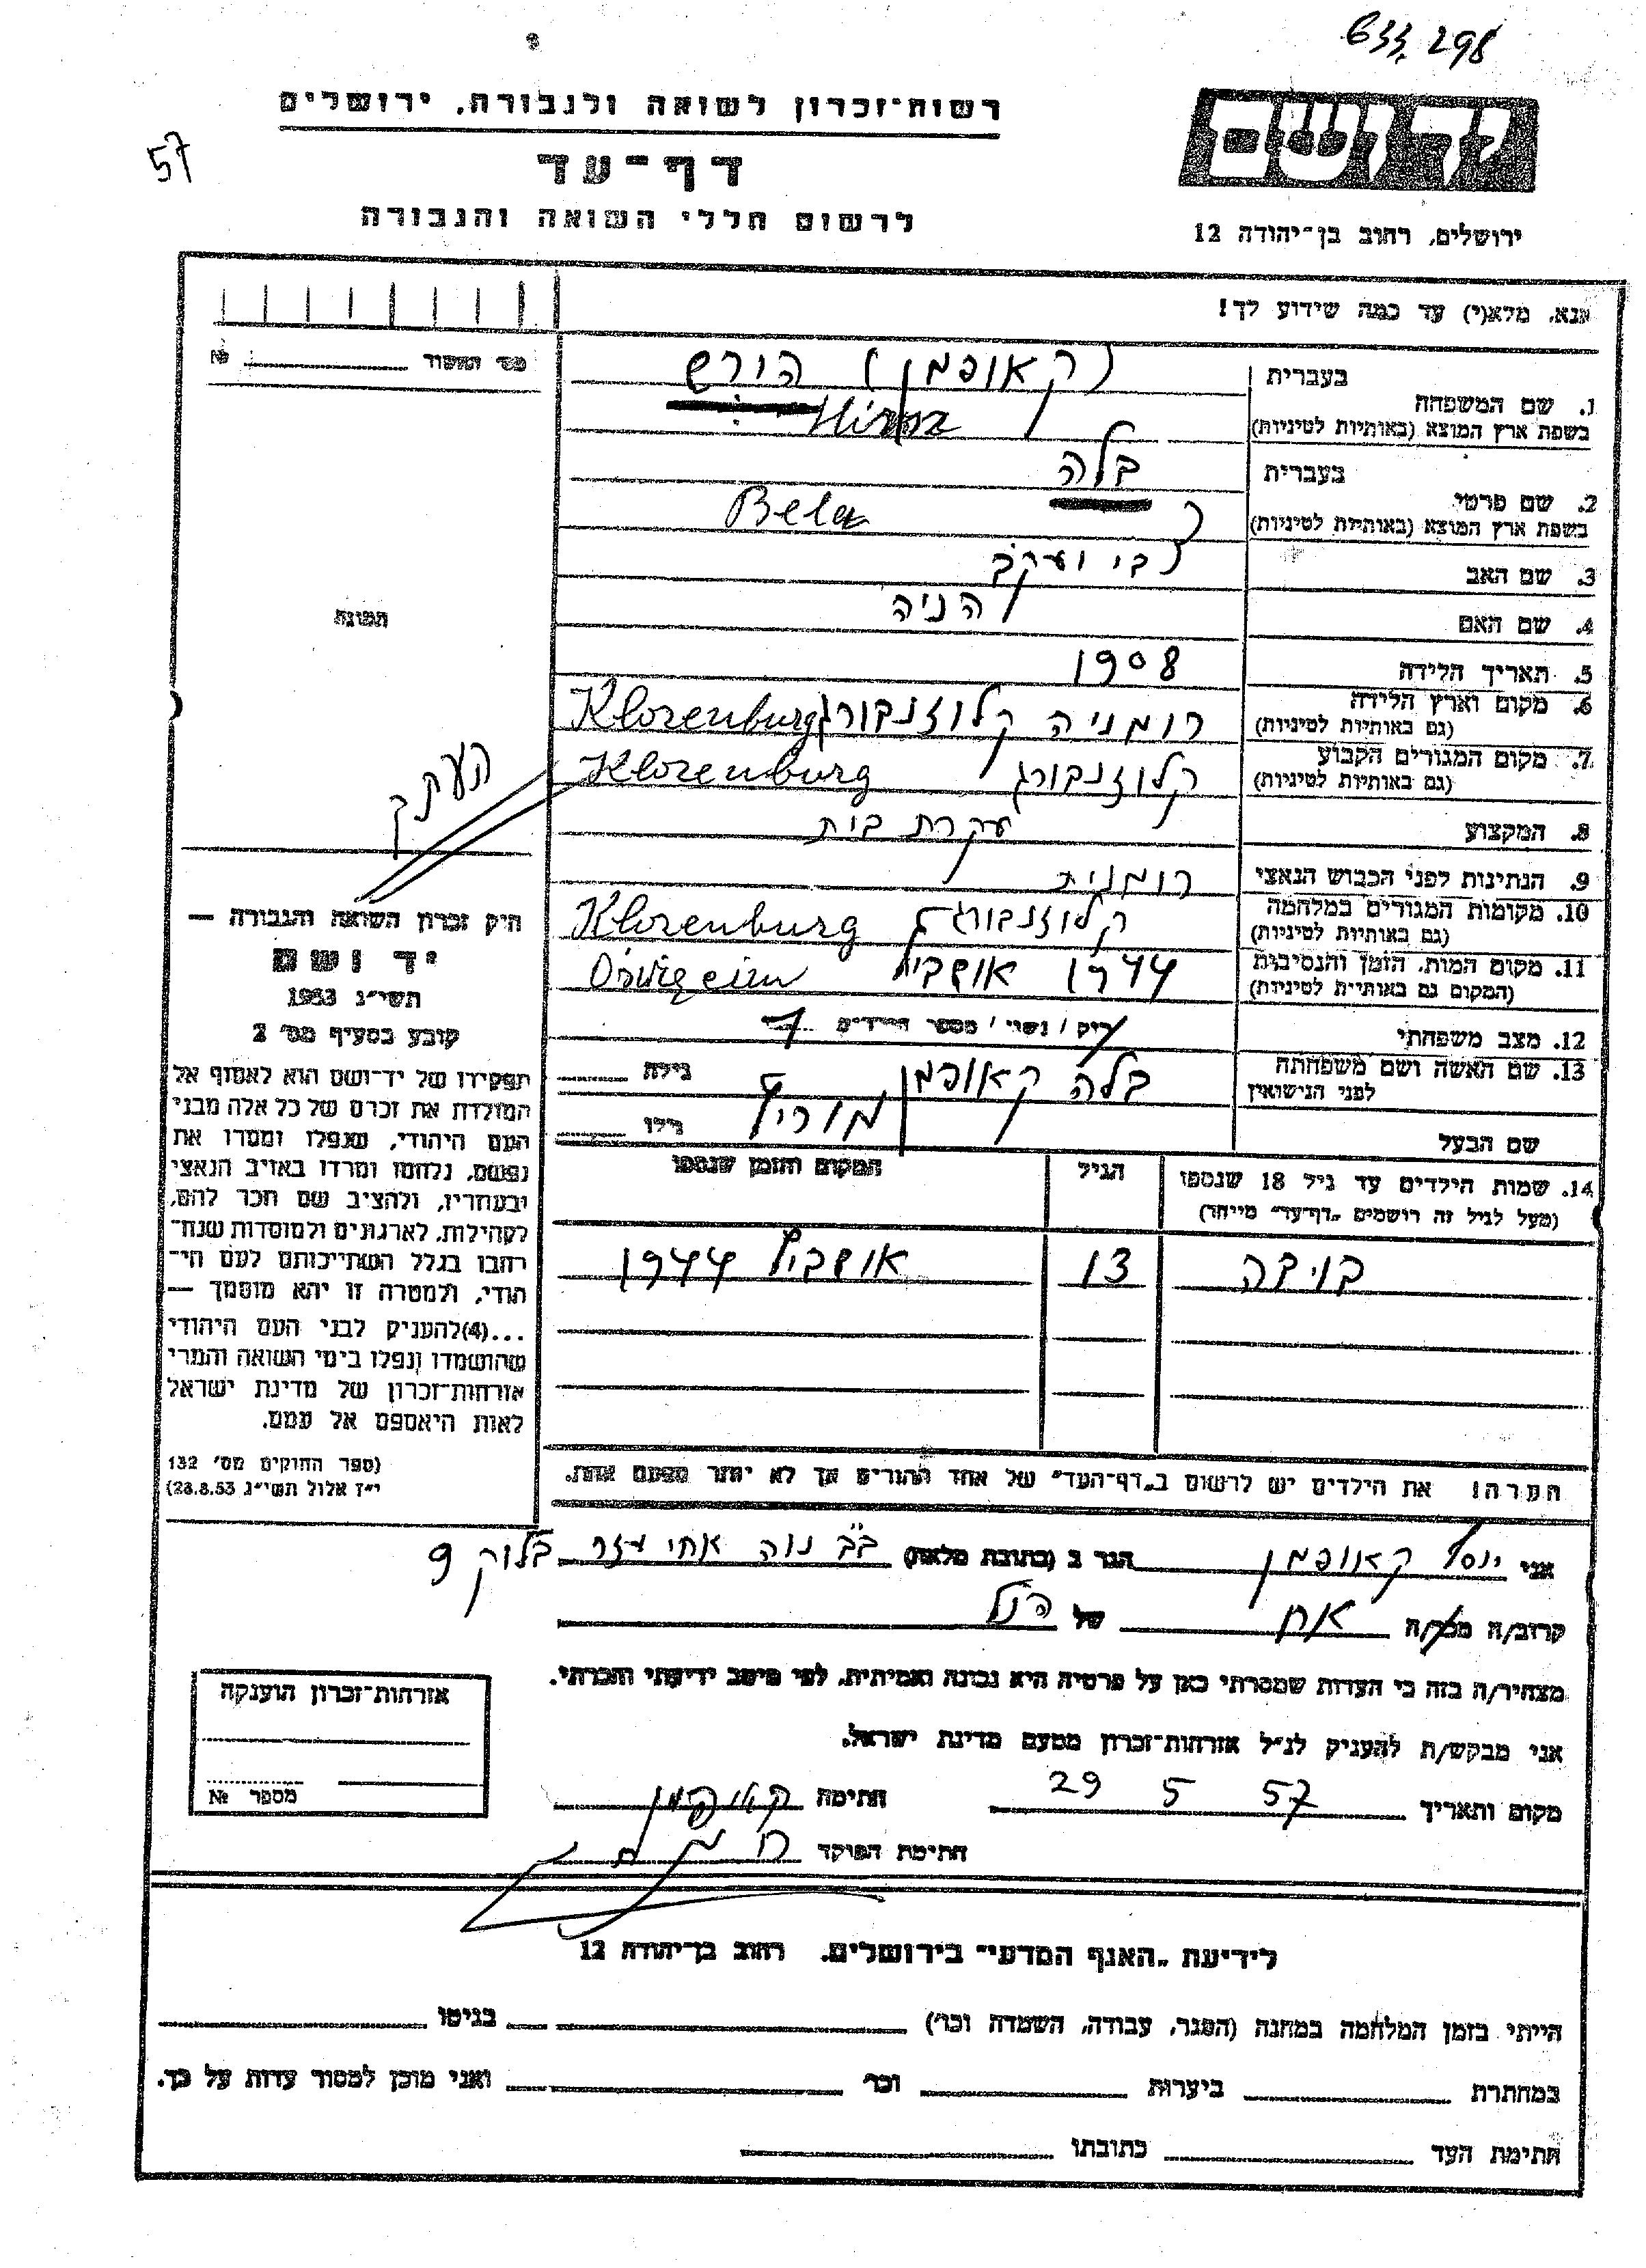 633, 298
רשות-זכרון לשואה ולגבורה, ירושלים
57
דף-עד
לרשום חללי השואה והגבורה
ירושלים, רחוב בן-יהודה 12
אנא, מלא(י) עד כמה שידוע לך!
מס' התשור № ________
1. שם המשפחה
בעברית
(קאופמן) הירש
בשפת ארץ המוצא (באותיות לטיניות)
2. שם פרטי
בעברית
בלה
בשפת ארץ המוצא (באותיות לטיניות)
Bela
3. שם האב
צבי יעקב
4. שם האם
הניה
תמונה
5. תאריך הלידה
1908
6. מקום וארץ הלידה
(גם באותיות לטיניות)
רומניה קלוזנבורג Klozenburg
7. מקום המגורים הקבוע
(גם באותיות לטיניות)
קלוזנבורג Klozenburg
העתק
8. המקצוע
עקרת בית
9. הנתינות לפני הכבוש הנאצי
רומנית
10. מקומות המגורים במלחמה
(גם באותיות לטיניות)
קלוזנבורג Klozenburg
11. מקום המות, הזמן והנסיבות
(המקום גם באותיות לטיניות)
1944 אושביץ
12. מצב משפחתי
רוק / נשוי / מספר הילדים 1
13. שם האשה ושם משפחתה
לפני הנישואין
בלה קאופמן
גילה
שם הבעל
מוריץ
גילו
14. שמות הילדים עד גיל 18 שנספו
(מעל לגיל זה רושמים "דף-עד" מייחד)
הגיל
המקום והזמן שנספו
13 אושביץ 1944
הערה! את הילדים יש לרשום ב"דף-העד" של אחד ההורים אך לא יותר מפעם אחת.
חוק זכרון השואה והגבורה —
יד ושם
תשי"ג 1953
קובע בסעיף מס' 2
תפקידו של יד-ושם הוא לאסוף אל
המולדת את זכרם של כל אלה מבני
העם היהודי, שנפלו ומסרו את
נפשם, נלחמו ומרדו באויב הנאצי
ובעוזריו, ולהציב שם וזכר להם,
לקהילות, לארגונים ולמוסדות שנח-
רבו בגלל השתייכותם לעם הי-
הודי, ולמטרה זו יהא מוסמך —
...(4) להעניק לבני העם היהודי
שהושמדו ונפלו בימי השואה והמרי
אזרחות-זכרון של מדינת ישראל
לאות היאספם אל עמם.
(ספר החוקים מס' 132
י"ז אלול תשי"ג 28.8.53)
אני יוסף קאופמן הגר ב (כתובת מלאה) ב"ב נוה אחיעזר בלוק 9
קרוב/ה מכר/ה אח של הנ"ל
מצהיר/ה בזה כי העדות שמסרתי כאן על פרטיה היא נכונה ואמיתית, לפי מיטב ידיעתי והכרתי.
אני מבקש/ת להעניק לנ"ל אזרחות-זכרון מטעם מדינת ישראל.
מקום ותאריך 29 5 57 חתימה קאופמן
חתימת הפוקד
אזרחות-זכרון הוענקה
מספר №
לידיעת "האגף המדעי" בירושלים, רחוב בן-יהודה 12
הייתי בזמן המלחמה במחנה (הסגר, עבודה, השמדה וכו') ________ בגיטו ________
במחתרת ________ ביערות ________ וכו' ________ ואני מוכן למסור עדות על כך.
חתימת העד ________ כתובתו ________